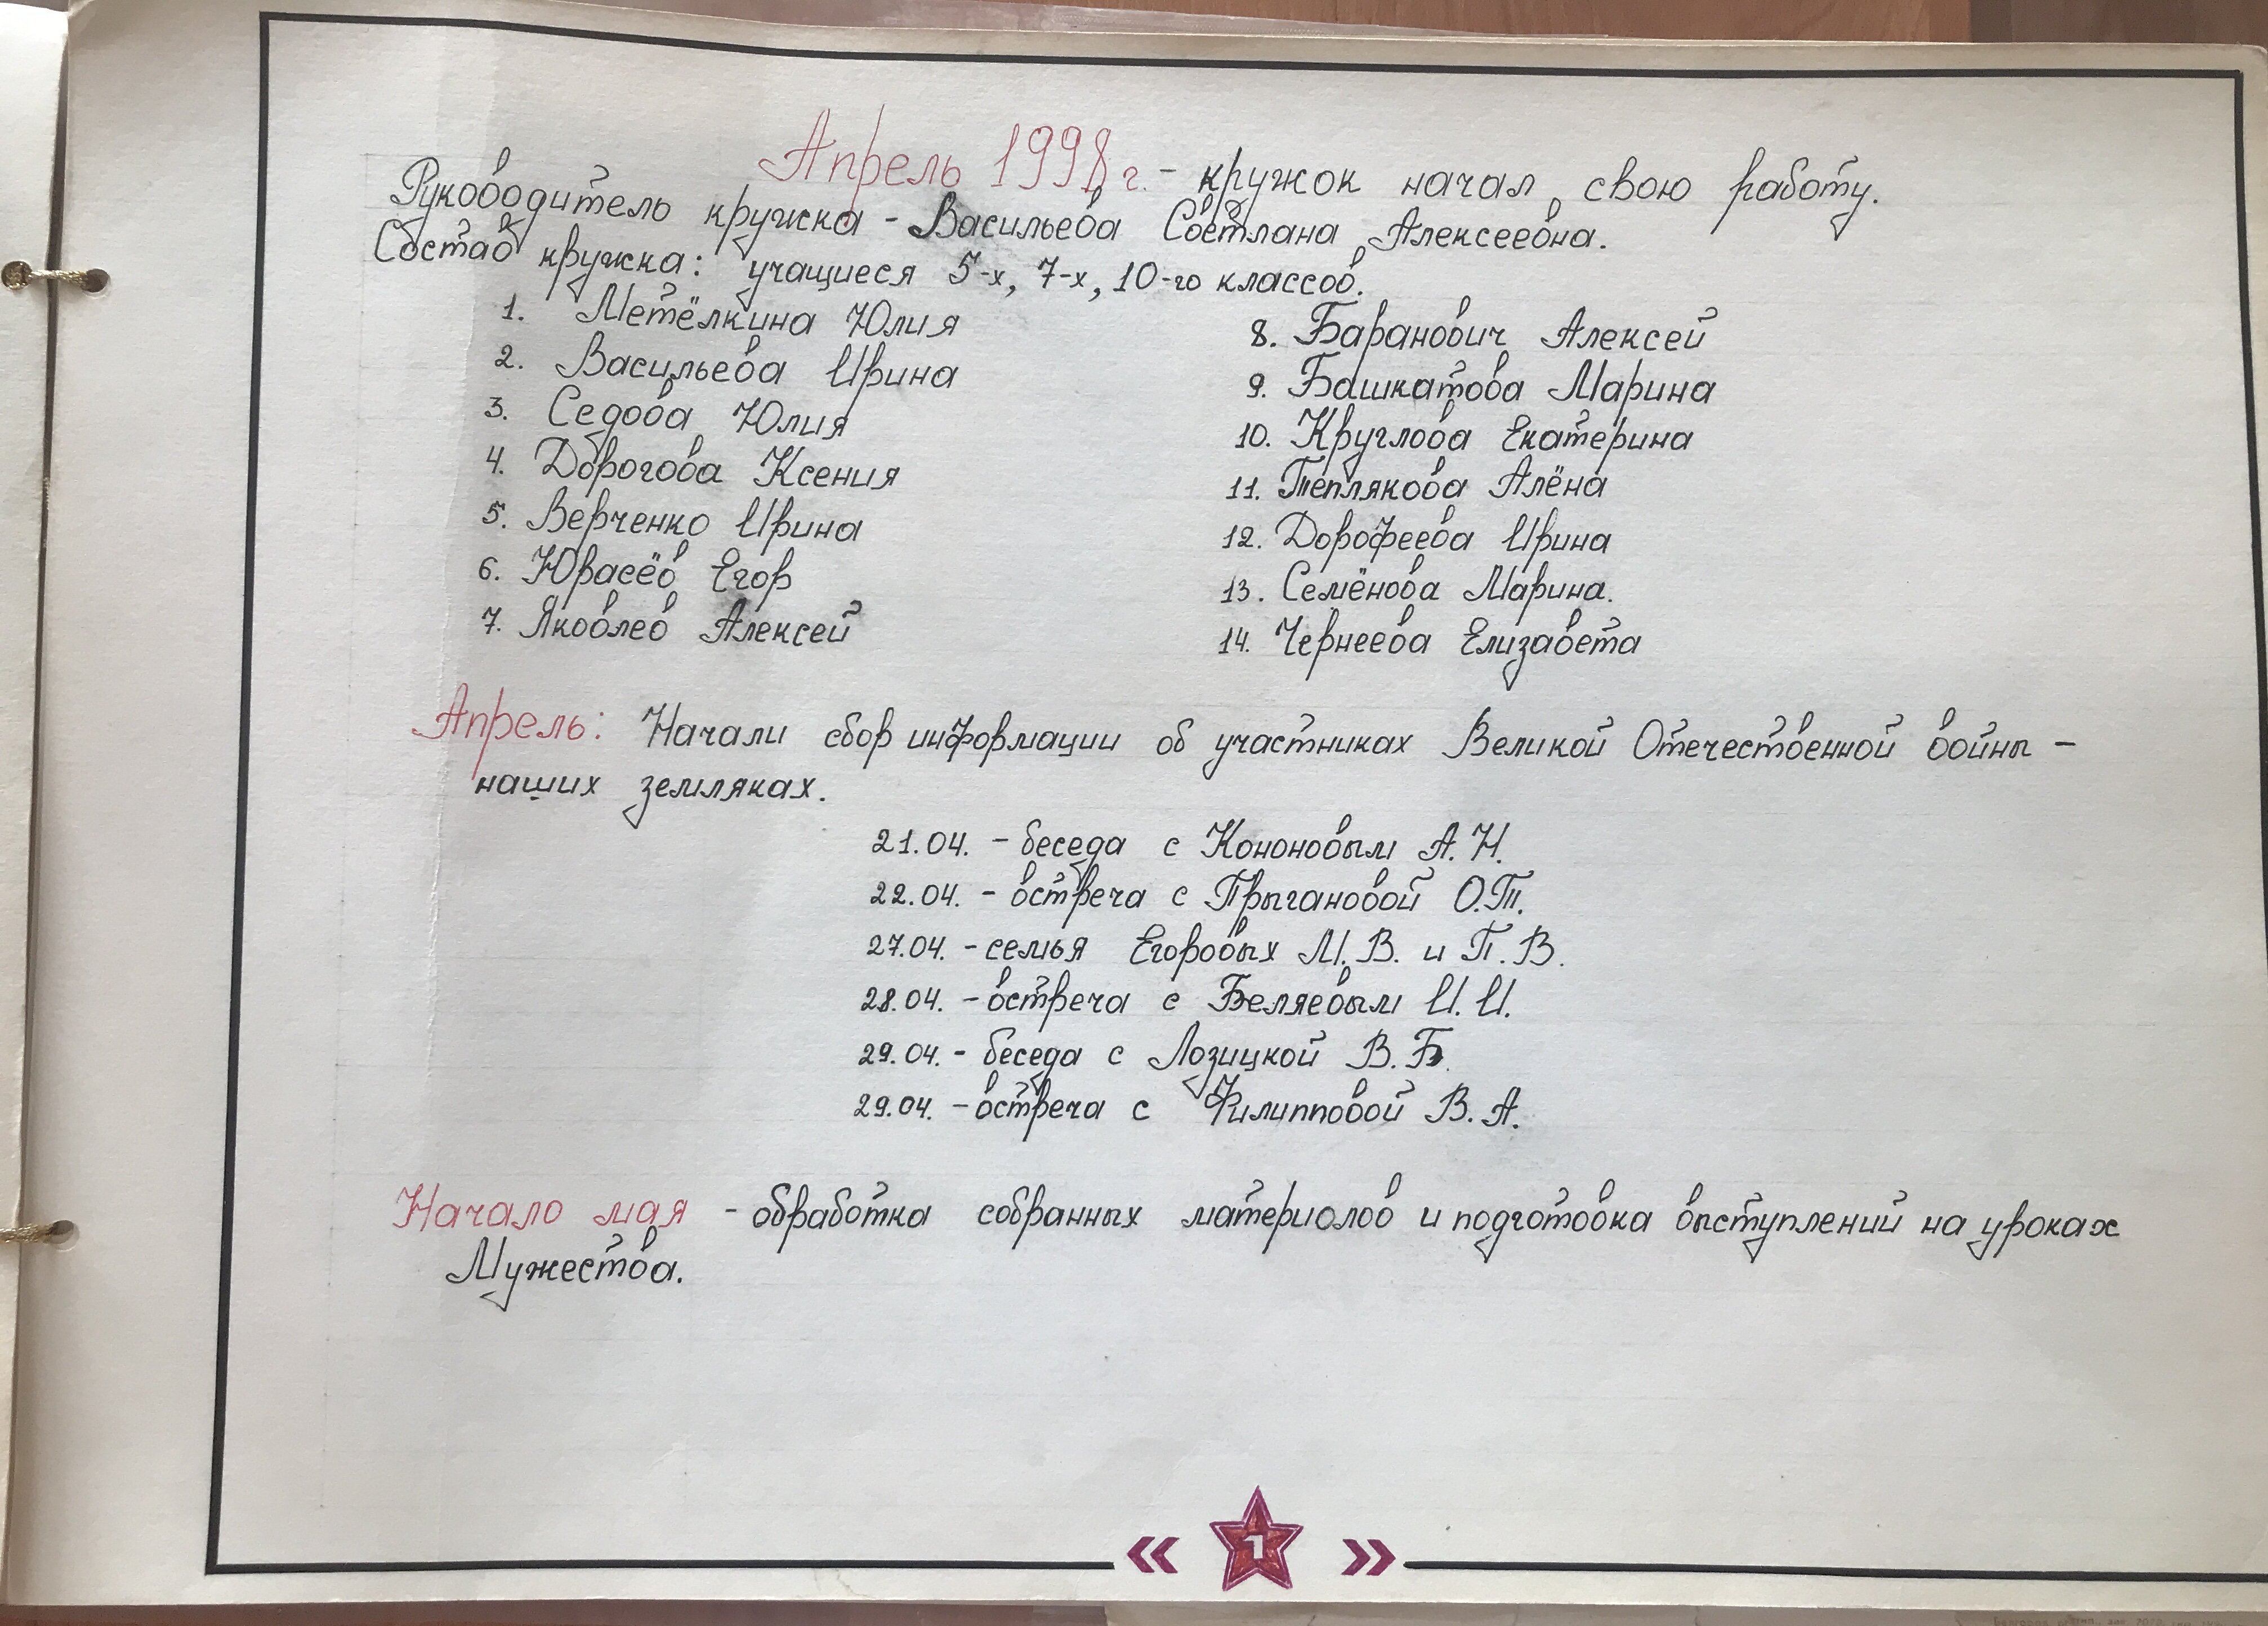 Апрель 1998 г. - кружок начал свою работу.
Руководитель кружка - Васильева Светлана Алексеевна.
Состав кружка: учащиеся 5-х, 7-х, 10-го классов.
1. Метёлкина Юлия
2. Васильева Ирина
3. Седова Юлия
4. Дорогова Ксения
5. Верченко Ирина
6. Юрасёв Егор
7. Яковлев Алексей
8. Баранович Алексей
9. Башкатова Марина
10. Круглова Екатерина
11. Теплякова Алёна
12. Дорофеева Ирина
13. Семёнова Марина.
14. Чернеева Елизавета
Апрель: Начали сбор информации об участниках Великой Отечественной войны -
наших земляках.
21.04. - беседа с Кононовым А.Н.
22.04. - встреча с Прыгановой О.П.
27.04. - семья Егоровых М.В. и П.В.
28.04. - встреча с Беляевым И.И.
29.04. - беседа с Лозицкой В.Б.
29.04. - встреча с Филипповой В.А.
Начало мая - обработка собранных материалов и подготовка выступлений на уроках
Мужества.
« 1 »